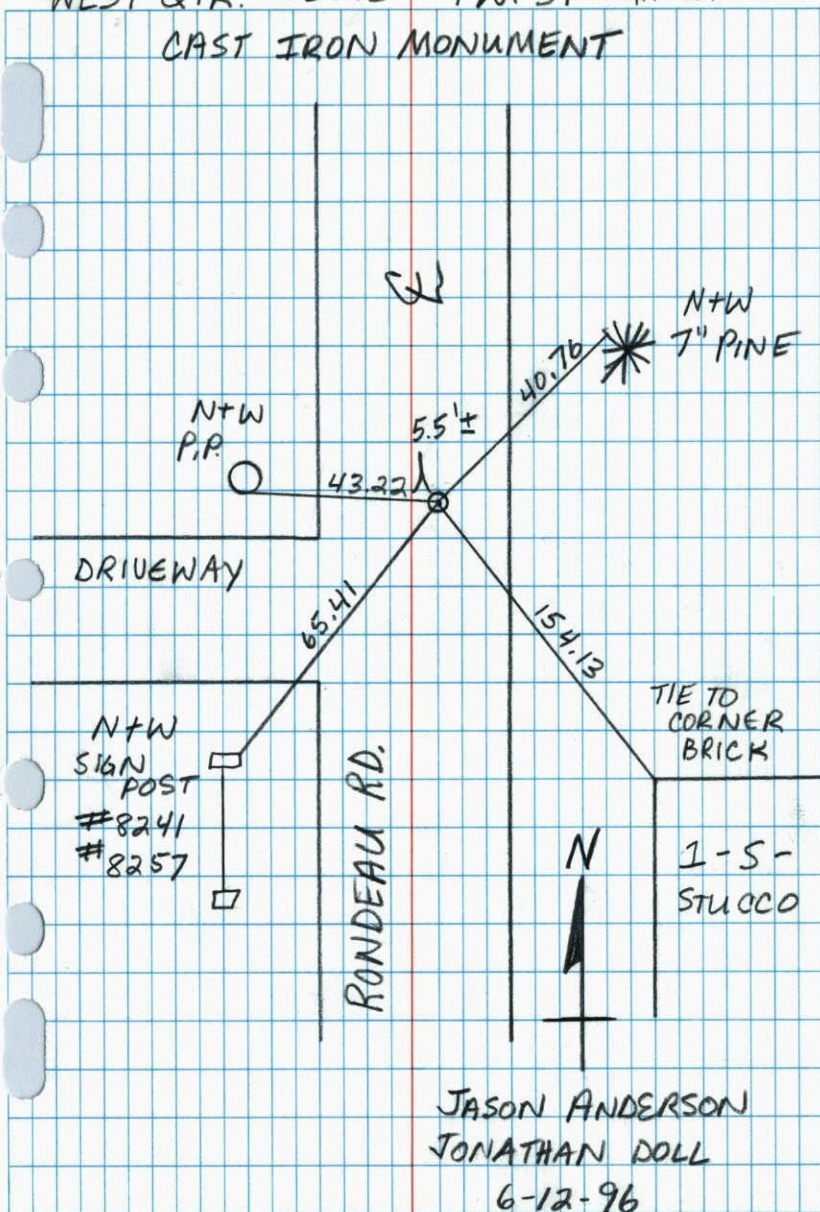 WEST QTR.
CAST IRON MONUMENT
℄
N+W
7" PINE
40.76
N+W
P.P.
5.5'±
43.22
DRIVEWAY
65.41
154.13
TIE TO
CORNER
BRICK
N+W
SIGN
POST
#8241
#8257
RONDEAU RD.
N
1-S-
STUCCO
JASON ANDERSON
JONATHAN DOLL
6-12-96